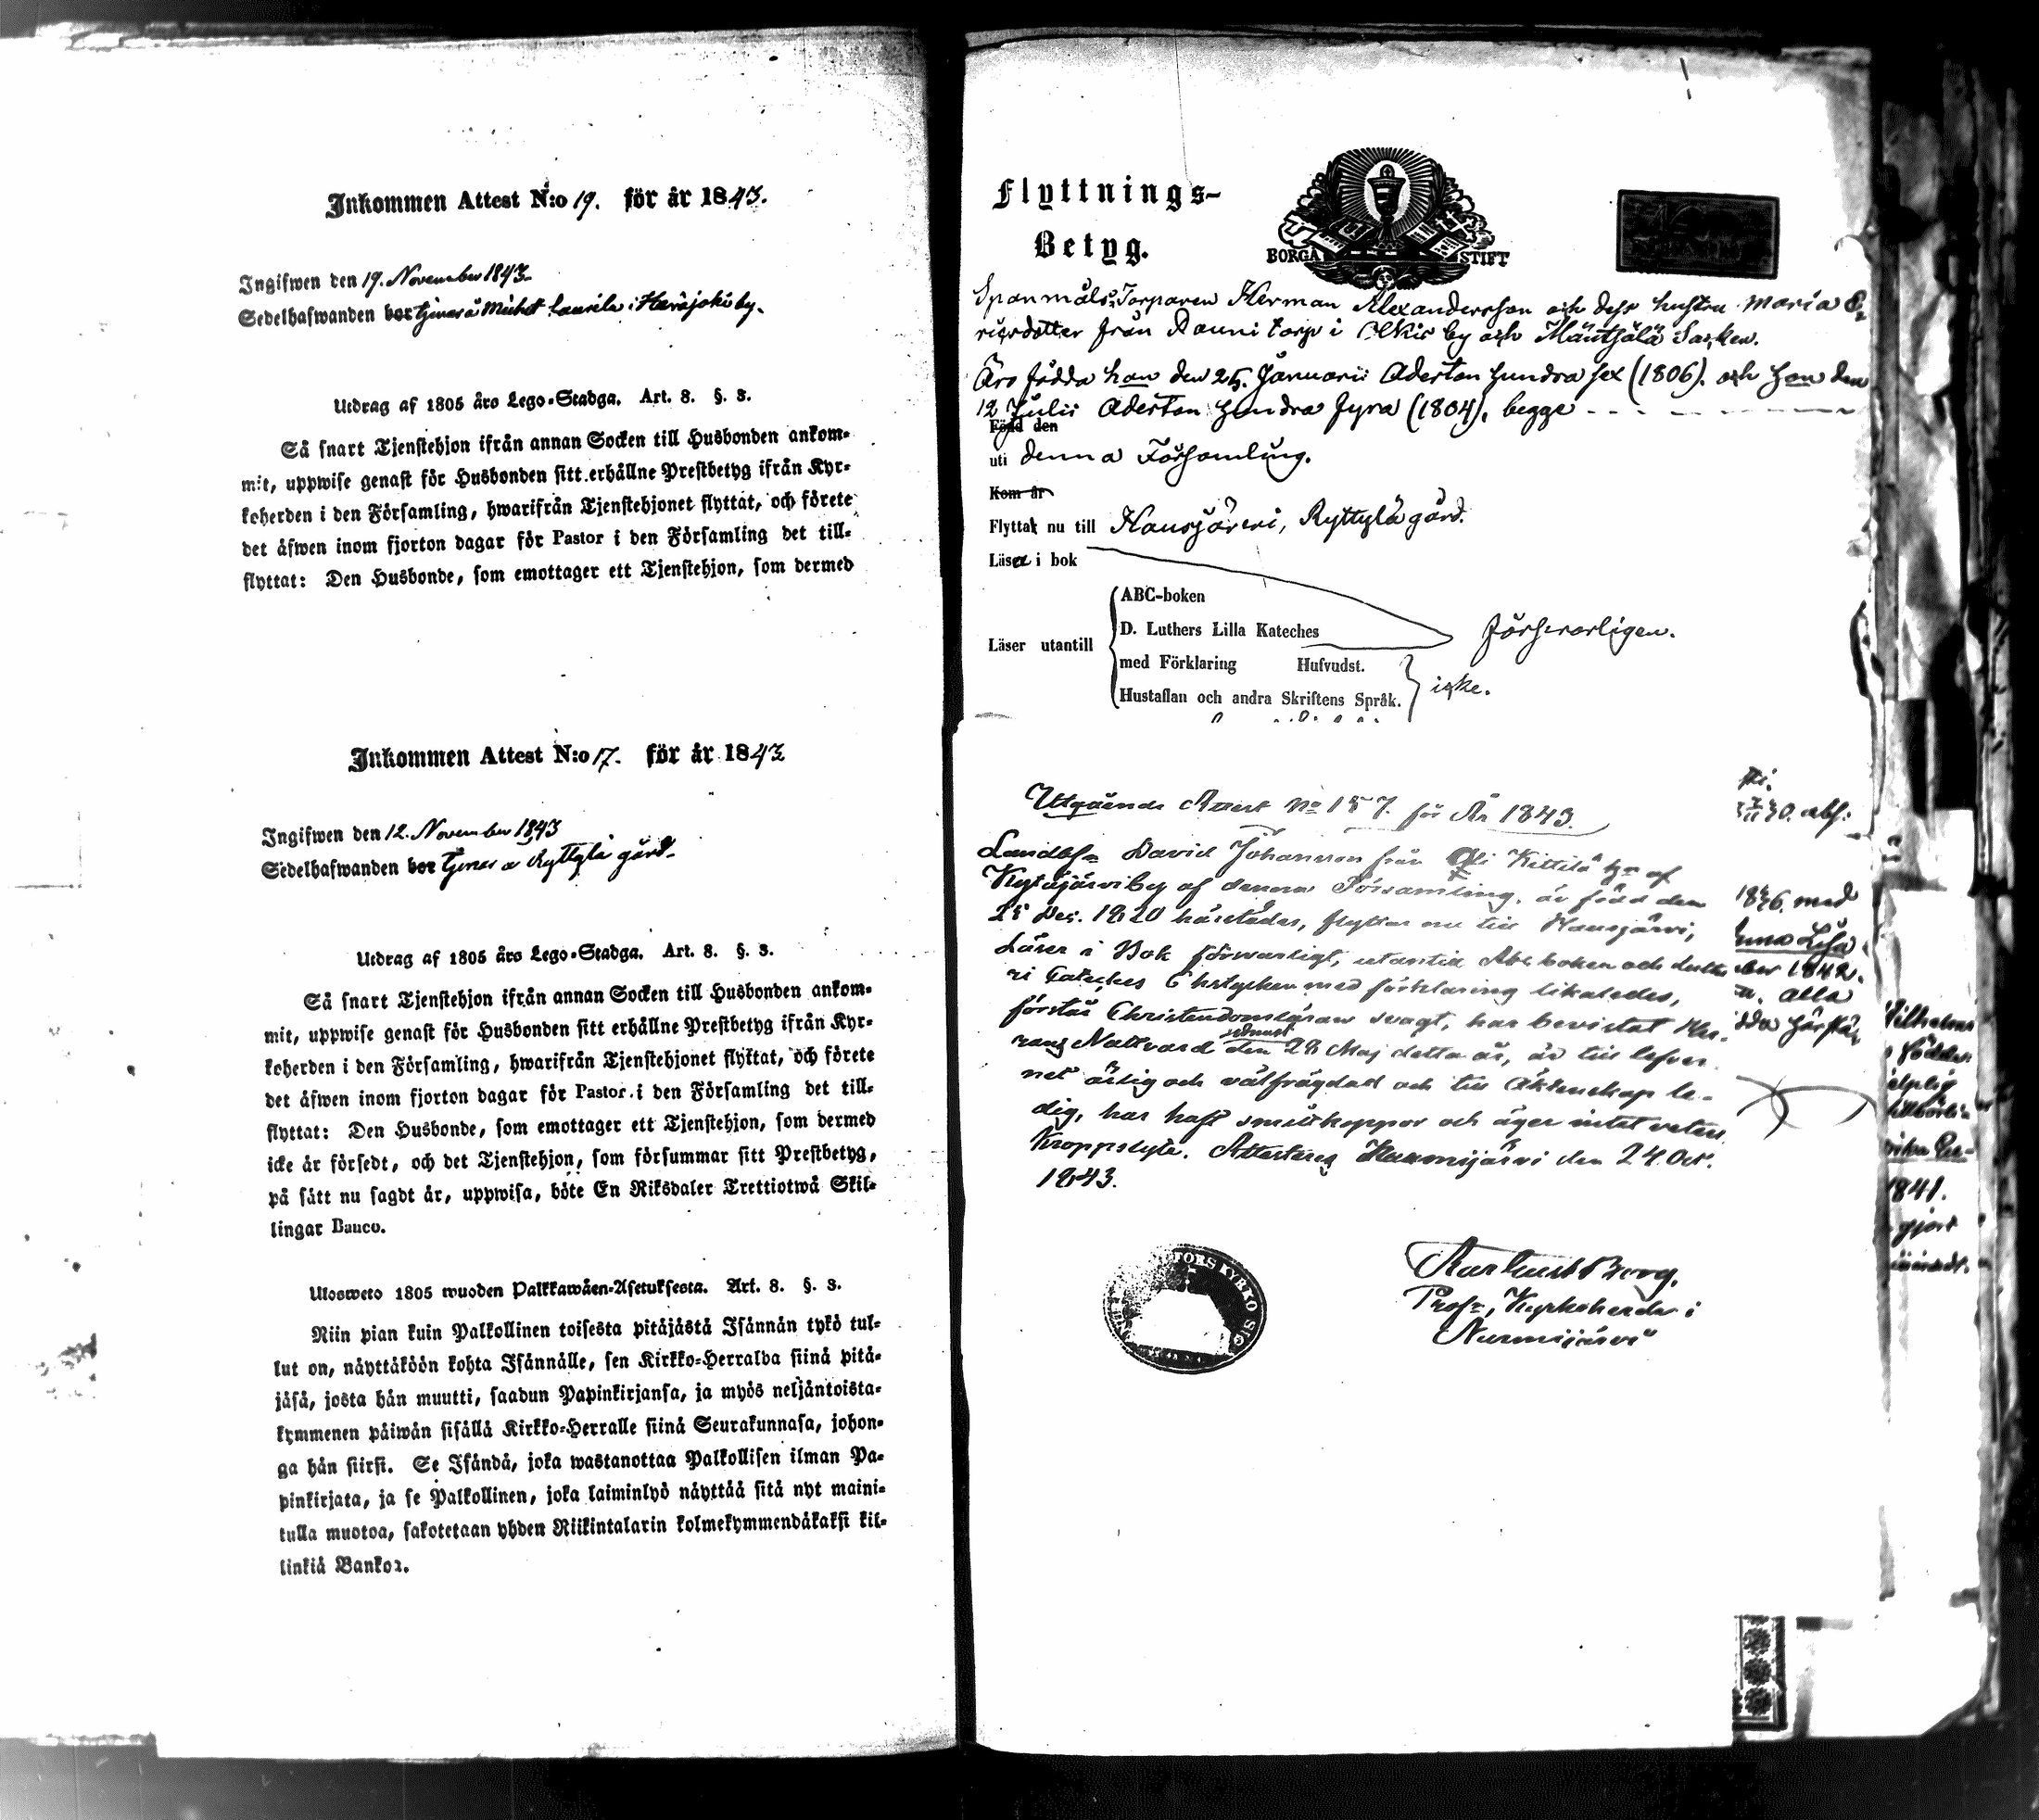 Inkommen Attest N:o 19. för år 1843.
Ingifwen den 19. November 1843.
Sedelhafwanden bor tjenar å Michel Laurila i Herajoki by.
Utdrag af 1805 års Lego-Stadga. Art. 8. §. 3.
Så snart Tjenstehjon ifrån annan Socken till Husbonden ankom-
mit, uppwise genast för Husbonden sitt erhållne Prestbetyg ifrån Kyr-
koherden i den Församling, hwarifrån Tjenstehjonet flyttat, och förete
det äfwen inom fjorton dagar för Pastor i den Församling det till-
flyttat: Den Husbonde, som emottager ett Tjenstehjon, som dermed
Inkommen Attest N:o 17. för år 1843
Ingifwen den 12. November 1843
Sedelhafwanden bor tjenar å Ryttylä gård.
Utdrag af 1805 års Lego-Stadga. Art. 8. §. 3.
Så snart Tjenstehjon ifrån annan Socken till Husbonden ankom-
mit, uppwise genast för Husbonden sitt erhållne Prestbetyg ifrån Kyr-
koherden i den Församling, hwarifrån Tjenstehjonet flyttat, och förete
det äfwen inom fjorton dagar för Pastor i den Församling det till-
flyttat: Den Husbonde, som emottager ett Tjenstehjon, som dermed
icke är försedt, och det Tjenstehjon, som försummar sitt Prestbetyg,
på sätt nu sagdt är, uppwisa, böte En Riksdaler Trettiotwå Skil-
lingar Banco.
Ulosweto 1805 wuoden Palkkawäen-Asetuksesta. Art. 8. §. 3.
Niin pian kuin Palkollinen toisesta pitäjästä Isännän tykö tul-
lut on, näyttäköön kohta Isännälle, sen Kirkko-Herralda siinä pitä-
jäsä, josta hän muutti, saadun Papinkirjansa, ja myös neljäntoista-
kymmenen päiwän sisällä Kirkko-Herralle siinä Seurakunnasa, johon-
ga hän siirsi. Se Isändä, joka wastanottaa Palkollisen ilman Pa-
pinkirjata, ja se Palkollinen, joka laiminlyö näyttää sitä nyt maini-
tulla muotoa, sakotetaan yhden Riikintalarin kolmekymmendäkaksi kil-
linkiä Bankos.
Flyttnings-
Betyg.
BORGÅ STIFT
Spanmåls Torparen Herman Alexandersson och dess hustru Maria E-
ricsdotter från Rauni torp i Olkis by och Mäntsälä Socken.
Äro födda han den 25. Januarii Aderton hundra sex (1806). och hon den
12 Julii Aderton hundra fyra (1804), begge
Född den
uti denna Församling.
Kom år
Flyttat nu till Hausjärvi, Ryttylä gård.
Läsa i bok
ABC-boken
D. Luthers Lilla Kateches
Läser utantill
med Förklaring Hufvudst.
Hustaflan och andra Skriftens Språk.
försvarligen.
icke.
Utgående Attest No 157. för År 1843.
David Johansson från Oli Kittilä hn af
Kytäjärvi by af denna Församling, är född den
25 Dec. 1820 härstädes, flyttar nu till Hausjärvi,
Läser i Bok försvarligt, utantill Abc boken och Luthe
ri Cateches 6 hstycken med förklaring likaledes,
förstår Christendomsläran svagt, har bevistat Her-
rans Nattvard sednast den 28 Maj detta år, är till lefver
net ärlig och välfrägdad och till Äktenskap le-
dig, har haft smittkoppor och äger intet veterl.
Kroppslyte. Attesteras Nurmijärvi den 24. Oct.
1843.
FORS KYRKO
Berg.
Prof:r, Kyrkoherde i
Nurmijärvi
30. abs:
1836. med
Lisa
1842.
alla
Wilhelm
född
1841.
gjort